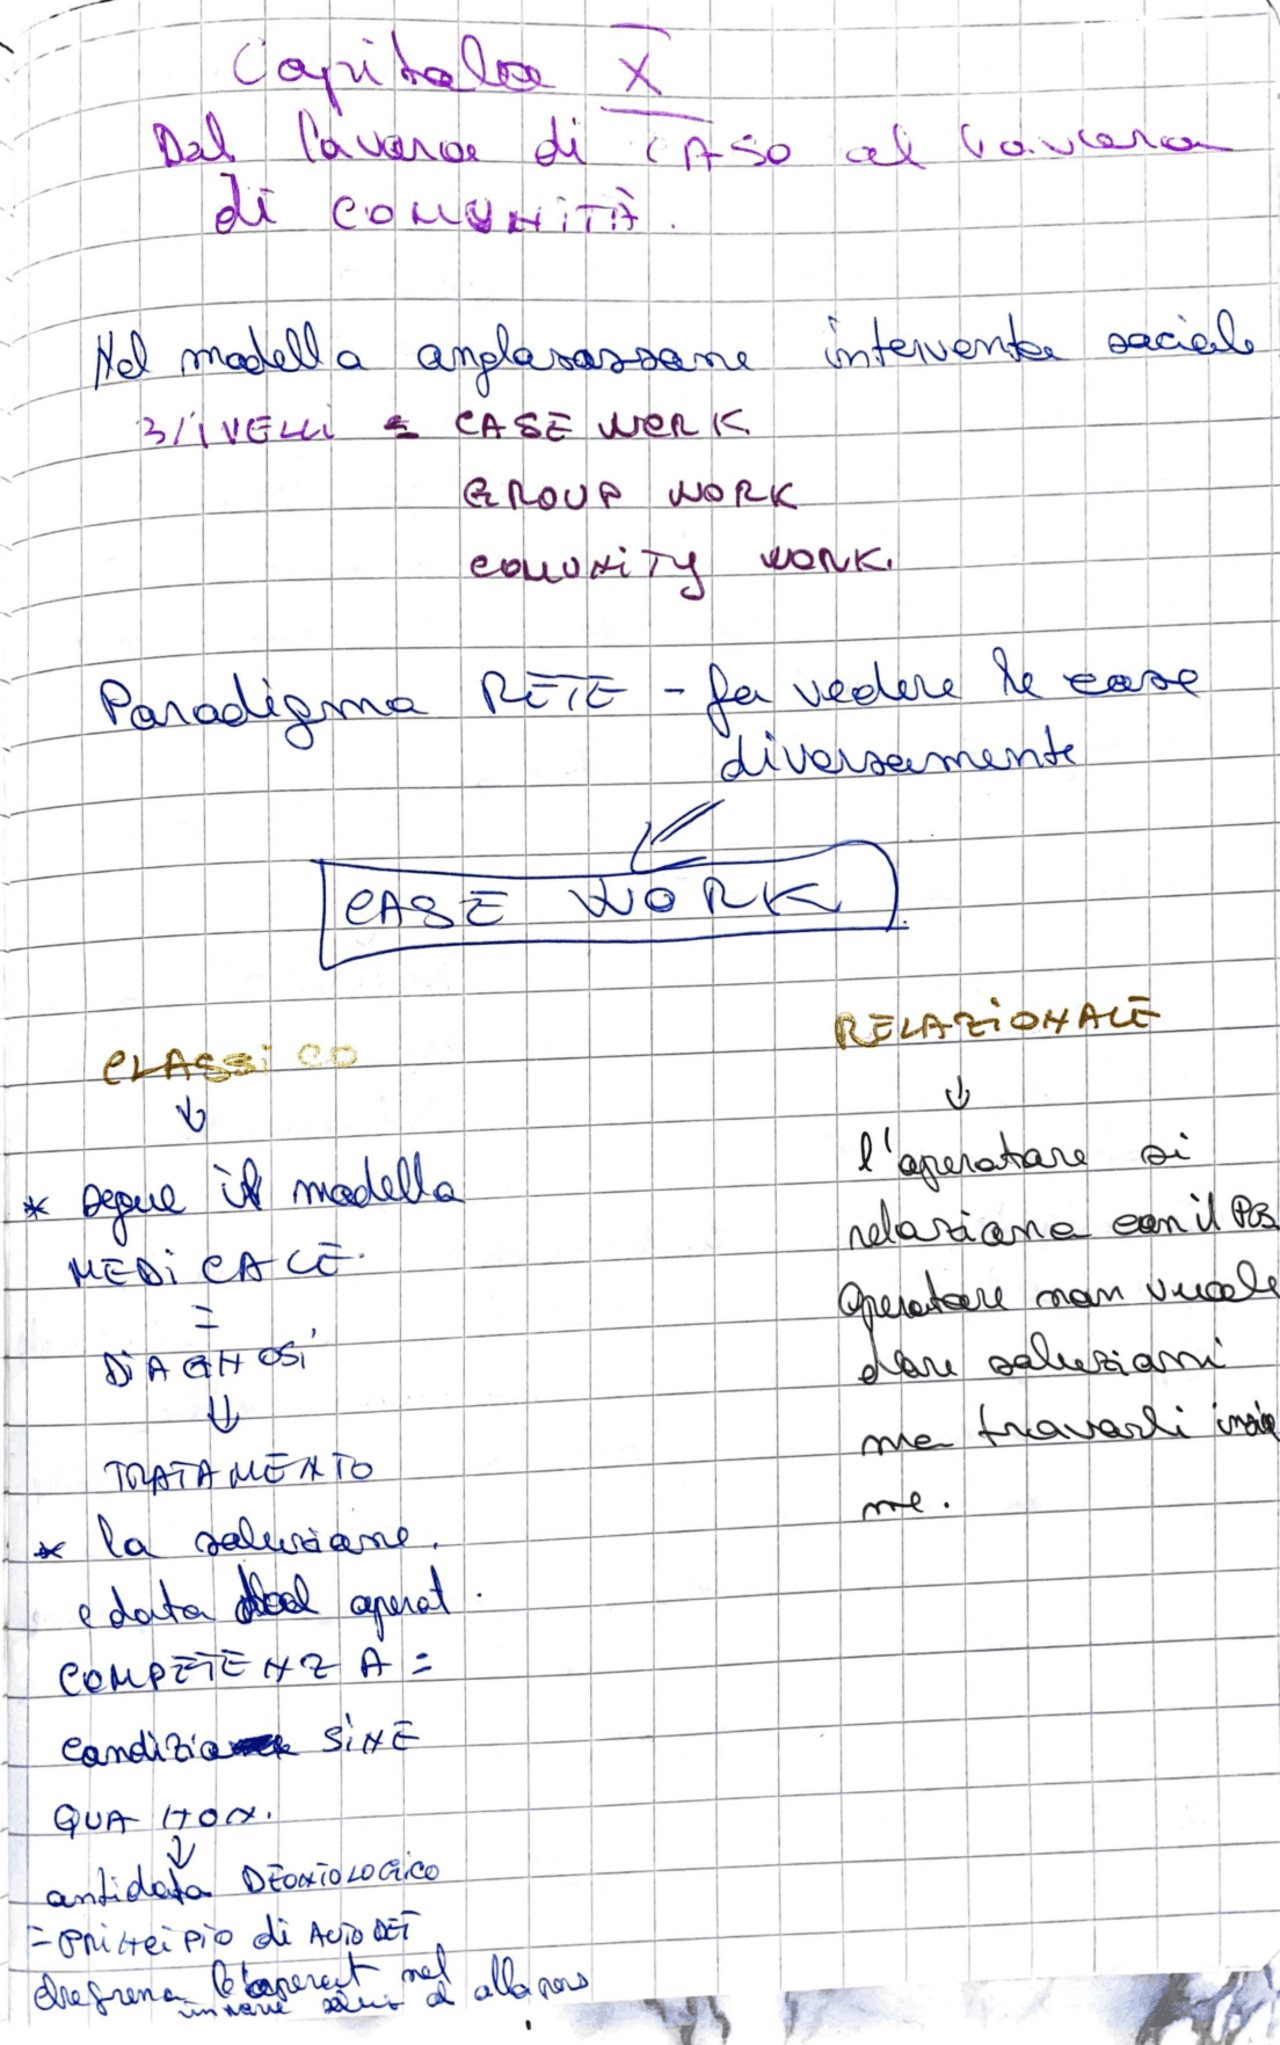 Capitolo X
Dal lavoro di CASO al lavoro
di COMUNITÀ.
Nel modello anglosassone intervento sociale
3 LIVELLI = CASE WORK
GROUP WORK
COMUNITY WORK.
Paradigma RETE - fa vedere le cose
diversamente
CASE WORK
CLASSICO
↓
* segue il modello
MEDICALE.
=
DIAGNOSI
⇓
TRATAMENTO
* la soluzione.
e data dal operat.
COMPETENZA =
condizione SINE
QUA NON.
↓
antidoto DEONTOLOGICO
= PRINCIPIO di AUTODET
che frena l'operat nel
alla pers
RELAZIONALE
↓
l'operatore si
relaziona con il PB.
Operatore non vuole
dare soluzioni
ma trovarli insie
me.